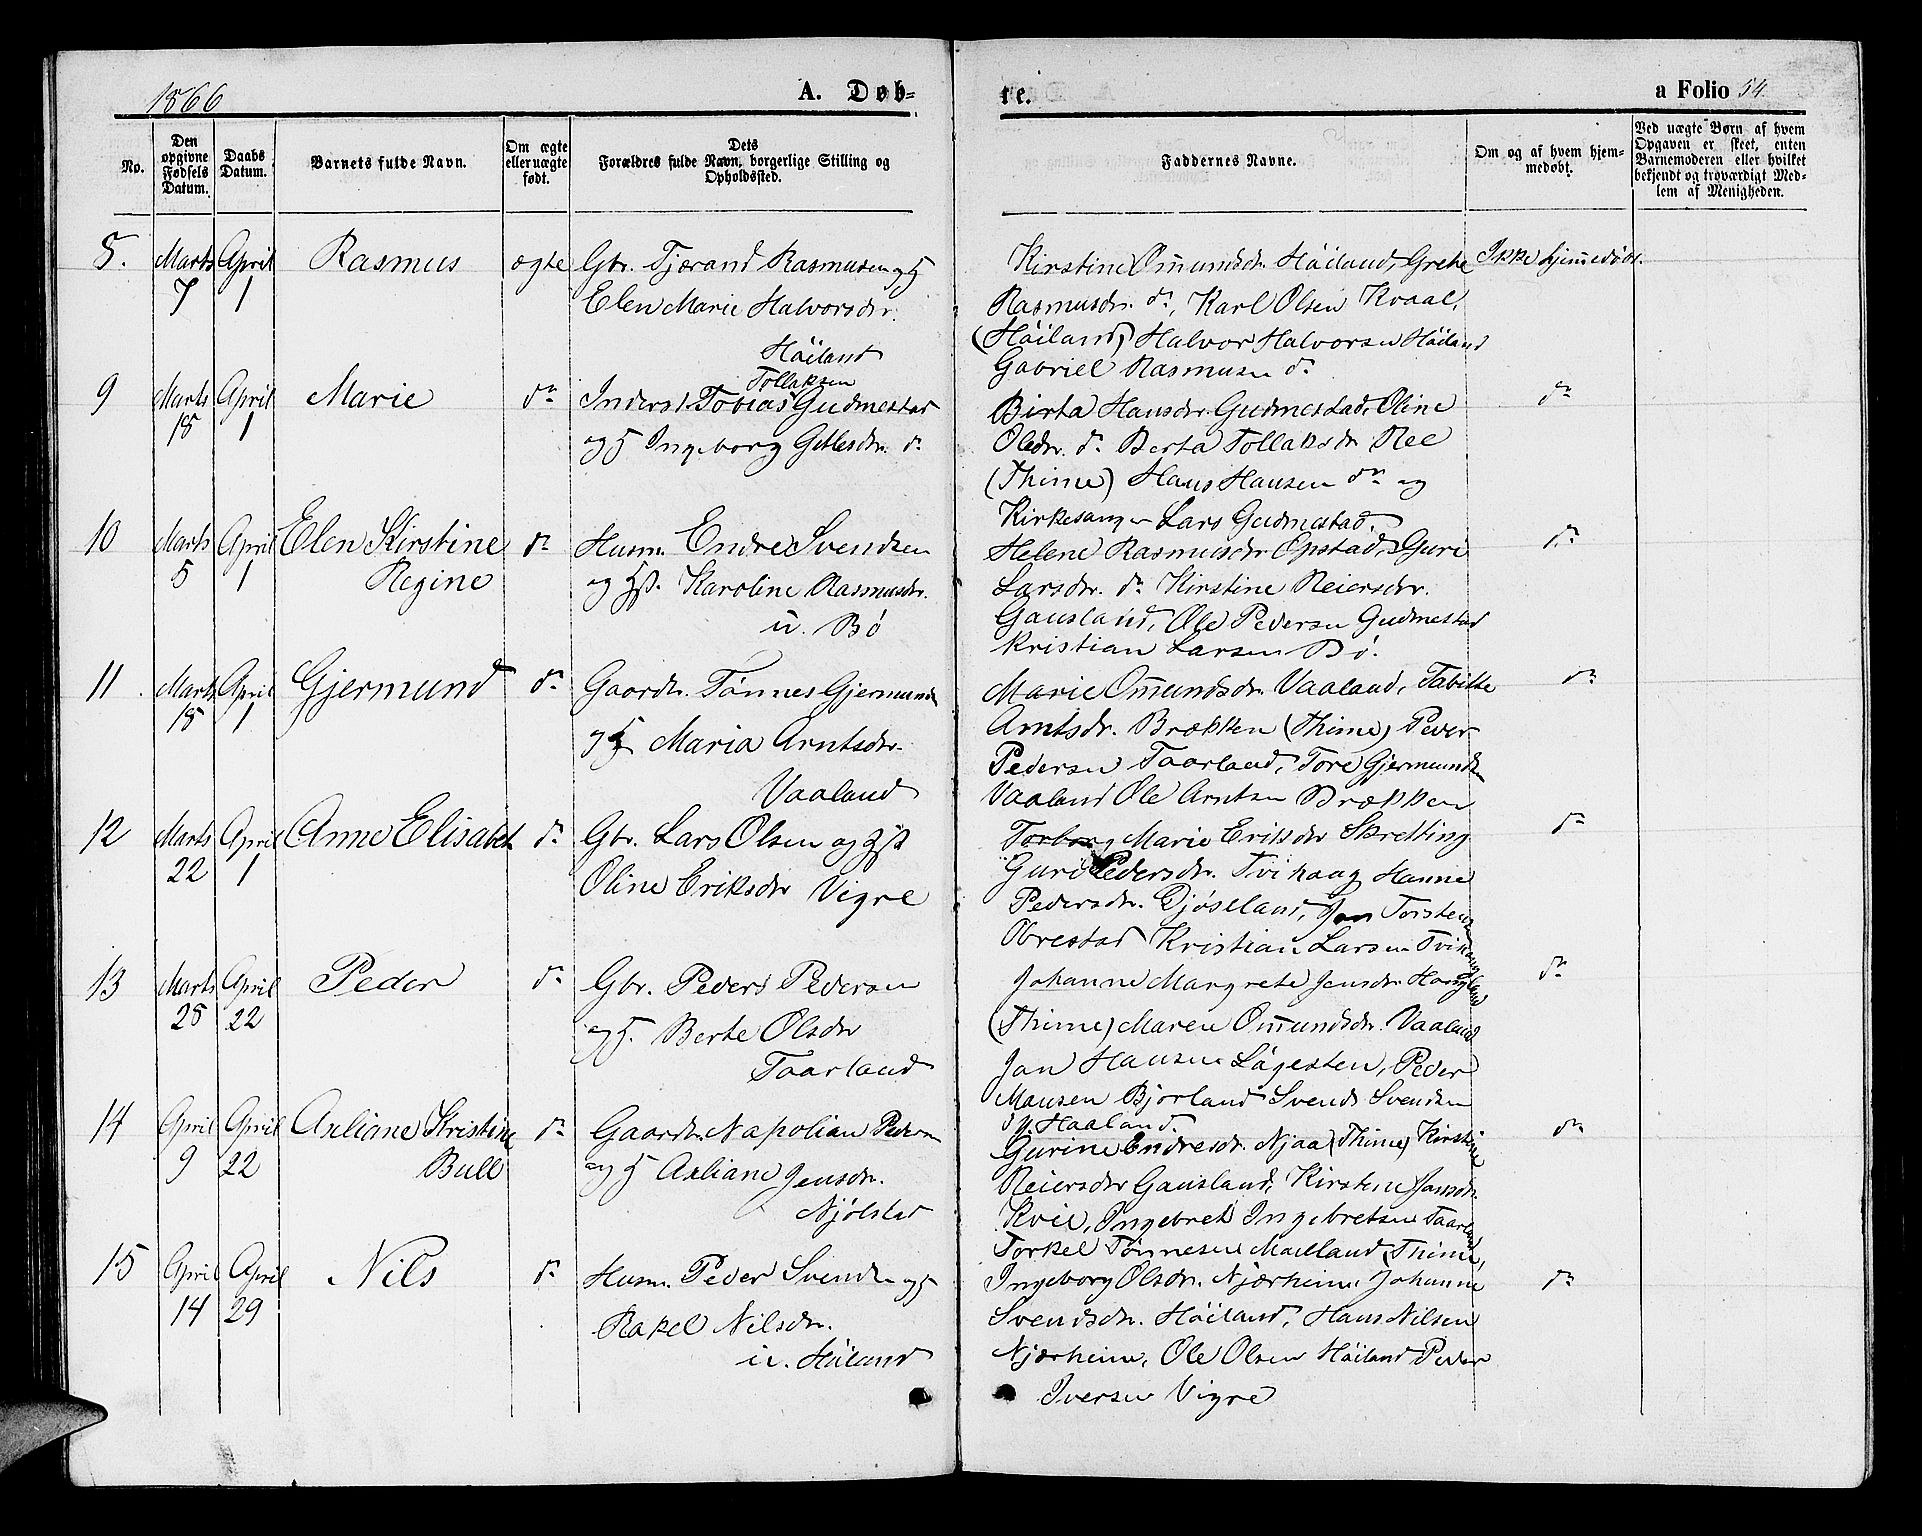 1866
A. Døb-
re.
a Folio 54
No.
Den opgivne Fødsels Datum.
Daabs Datum.
Barnets fulde Navn.
Om ægte eller uægte født.
Dets Forældres fulde Navn, borgerlige Stilling og Opholdssted.
Faddernes Navne.
Om og af hvem hjem-
medøbt.
Ved uægte Børn af hvem
Opgaven er skeet, enten
Barnemoderen eller hvilket
bekjendt og troværdigt Med-
lem af Menigheden.
8. Marts 7 April 1 Rasmus ægte
Gbr. Tjærand Rasmusen og H
Elen Marie Halvorsdr.
Höiland
Kirstine Om̄undsdr. Höiland, Grete
Rasmusdr. do, Karl Olsen Kvaal,
(Höiland) Halvor Halvorsen Höiland
Gabriel Rasmusen do
Ikke hjem̄edöbt.
9 Marts 18 April 1 Marie do
Tollaksen
Inderst. Tobias Gudmestad
og H Ingeborg do
Birta Hansdr. Gudmestad, Oline
Olsdr. do Berta Tollaksdr Ree
(Thime) Hans Hansen do og
Kirkesanger Lars Gudmestad.
do
10 Marts 5 April 1 Elen Kirstine
Regine do
Husm. Endre Svendsen
og Hst. Karoline Rasmusdr.
u. Bö
Helene Rasmusdr Opstad, Guri
Larsdr. do Kirstine Reiersdr.
Gausland, Ole Pedersen Gudmestad
Kristian Larsen Bö.
do
11 Marts 18 April 1 Gjermund do
Gaardbr. Tönnes Gjermunds
og H Maria Arntsdr.
Vaaland
Marie Om̄undsdr. Vaaland, Tabitte
Arntsdr. Brækken (Thime) Peder
Pedersen Taarland, Tore Gjermunds
Vaaland Ole Arntsen Brækken
do
12 Marts 22 April 1 Anne Elisabet do
Gbr. Lars Olsen og Hst
Oline Eriksdr Vigre
Torborg Marie Eriksdr Skretting
Guri Pedersdr. Tvihaug Hanne
Pedersdr. Djösland, Jan Torstens
Obrestad Kristian Larsen Tvihaug
do
13 Marts 28 April 22 Peder do
Gbr. Peders Pedersen
og H. Berte Olsdr
Taarland
Johanne Margrete Jensdr. Haugland
(Thime) Maren Om̄undsdr. Vaaland
Jan Hansen Lögesten, Peder
Mausen Bjorland Svend Svendsen
Haaland.
do
14 April 9 April 22 Axliane Kristine
Bull do
Gaardbr. Napolian Pedersen
og H Axliane Jensdr.
Njölstad
Gurine Endresdr. Njaa (Thime) Kirstine
Reiersdr Gausland, Kirstine Jansdr.
Kvie, Ingebret Ingebretsen Taarland
Torkel Tönnesen Mælland (Thime,
do
15 April 14 April 29 Nils do
Husm. Peder Svends og H
Rakel Nilsdr.
u. Höiland
Ingeborg Olsdr. Njærheim, Johanne
Svendsdr. Höiland, Hans Nilsen
Njærheim, Ole Olsen Höiland Peder
Iversen Vigre
do